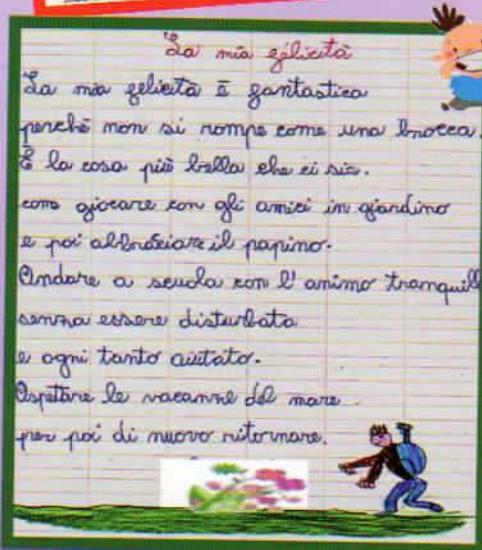 La mia felicità
La mia felicità è fantastica
perché non si rompe come una brocca.
È la cosa più bella che ci sia.
come giocare con gli amici in giardino
e poi abbracciare il papino.
Andare a scuola con l'animo tranquill
senza essere disturbata
e ogni tanto aiutato.
Aspettare le vacanze del mare
per poi di nuovo ritornare.